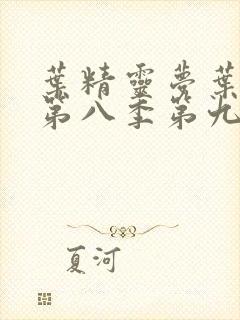 葉精靈夢葉
第八季第九
夏河